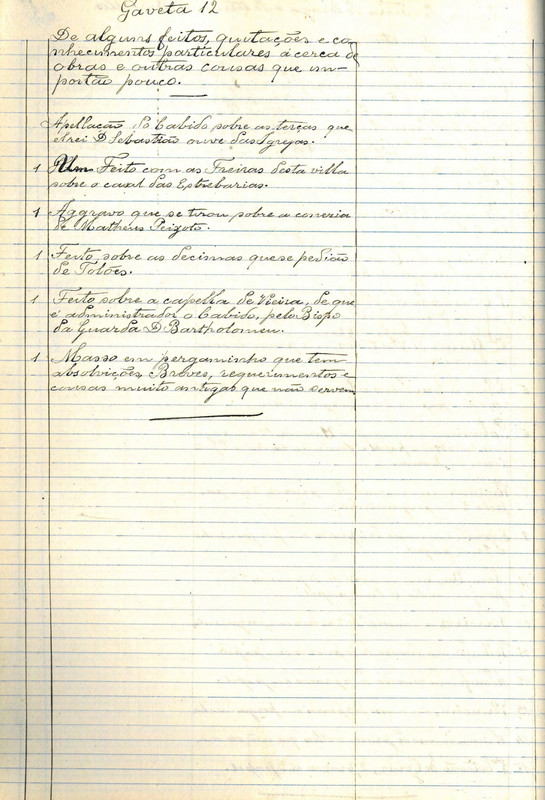 Gaveta 12
De alguns feitos, quitações e co-
nhecimentos particulares á cerca de
obras e outras cousas que im-
portão pouco.
Apellação do Cabido sobre as terças que
elrei D Sebastião ouve das Igrejas.
1 Um Feito com as Freiras desta villa
sobre o casal das Estrebarias.
1 Aggravo que se tirou sobre a conezia
de Matheus Peixoto.
1 Feito sobre as decimas que se pedião
de Tolões.
1 Feito sobre a capella de Vieira, de que
é administrador o Cabido, pelo Bispo
da Guarda D Bartholomeu.
1 Masso em pergaminho que tem
absolvições, Breves, requerimentos e
cousas muito antigas que não servem